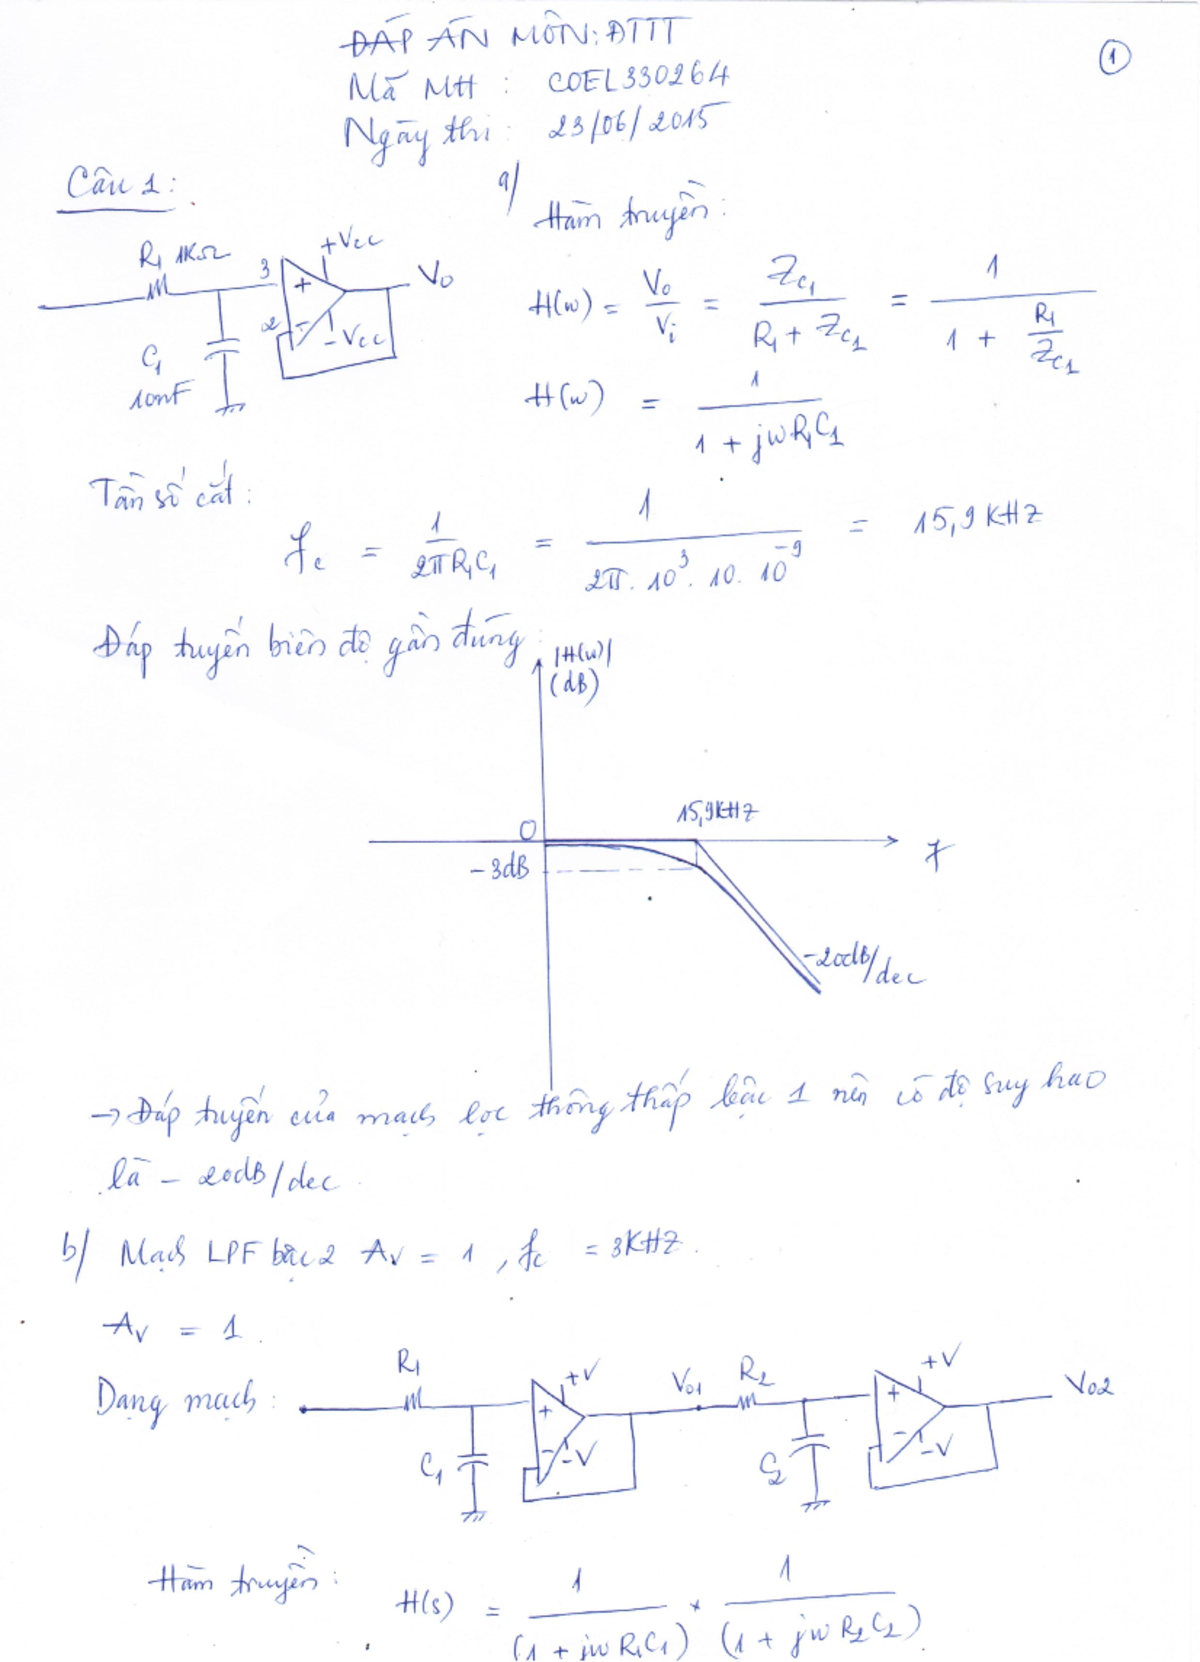 ĐÁP ÁN MÔN: ĐTTT
1
Mã MH : COEL330264
Ngày thi : 23/06/2015
Câu 1 :
a/ Hàm truyền :
R1 1KΩ
3
+
+Vcc
Vo
2
-
-Vcc
C1
10nF
H(w) = Vo / Vi = ZC1 / (R1 + ZC1) = 1 / (1 + R1/ZC1)
H(w) = 1 / (1 + jwR1C1)
Tần số cắt :
fc = 1 / (2πR1C1) = 1 / (2π. 10³. 10. 10⁻⁹) = 15,9 KHZ
Đáp tuyến biên độ gần đúng :
|H(w)|
(dB)
15,9KHZ
0
f
-3dB
-20dB/dec
→ Đáp tuyến của mạch lọc thông thấp bậc 1 nên có độ suy hao
là - 20dB/dec
b/ Mạch LPF bậc 2 AV = 1 , fc = 3KHZ.
AV = 1.
Dạng mạch :
R1
+V
+
-
-V
C1
Vo1
R2
+V
+
-
-V
C2
Vo2
Hàm truyền :
H(s) = 1 / (1 + jwR1C1) * 1 / (1 + jwR2C2)